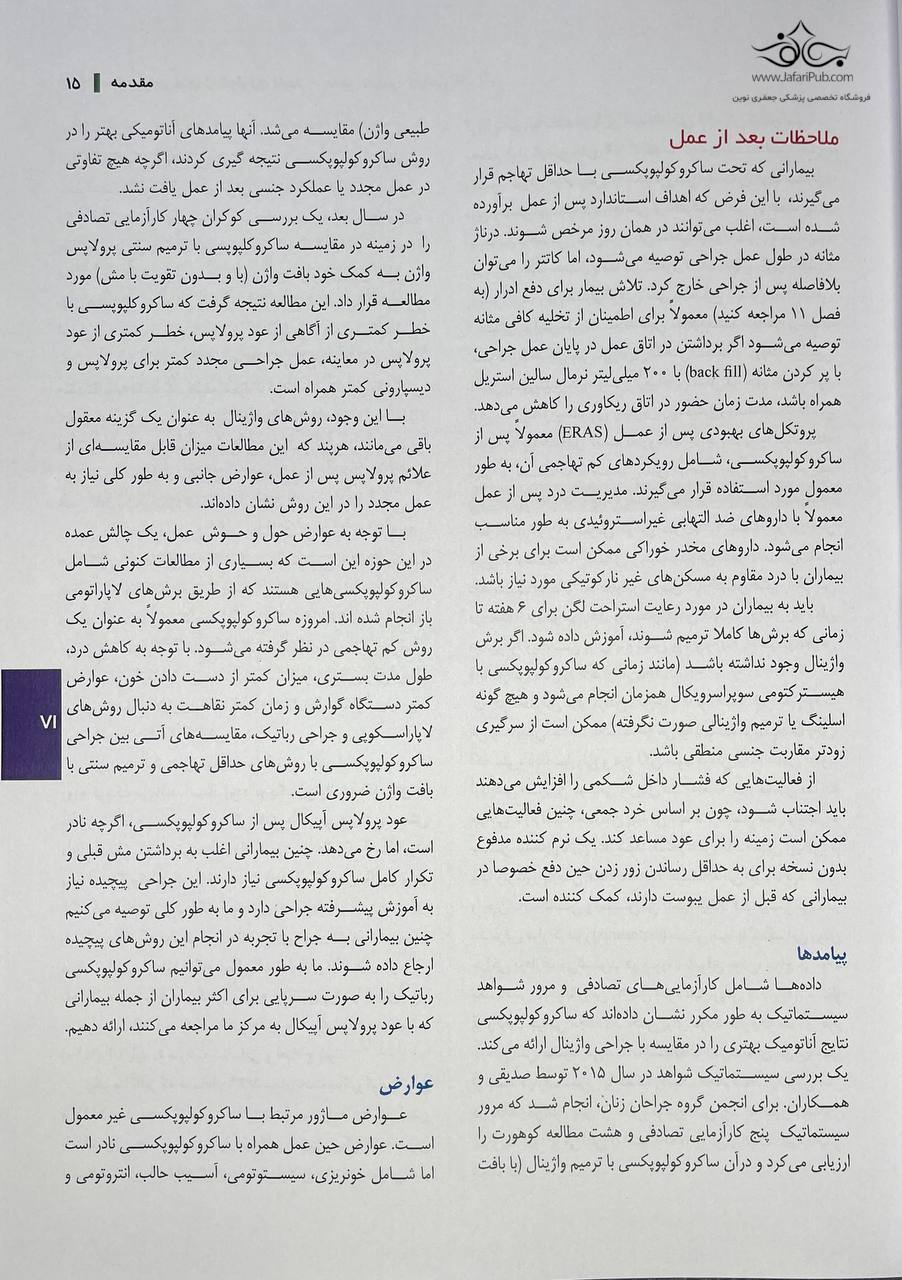 جعفری
www.JafariPub.com
فروشگاه تخصصی پزشکی جعفری نوین
مقدمه | ۱۵
ملاحظات بعد از عمل
بیمارانی که تحت ساکروکولپوپکسی با حداقل تهاجم قرار
می‌گیرند، با این فرض که اهداف استاندارد پس از عمل برآورده
شده است، اغلب می‌توانند در همان روز مرخص شوند. درناژ
مثانه در طول عمل جراحی توصیه می‌شود، اما کاتتر را می‌توان
بلافاصله پس از جراحی خارج کرد. تلاش بیمار برای دفع ادرار (به
فصل ۱۱ مراجعه کنید) معمولاً برای اطمینان از تخلیه کافی مثانه
توصیه می‌شود اگر برداشتن در اتاق عمل در پایان عمل جراحی،
با پر کردن مثانه (back fill) با ۲۰۰ میلی‌لیتر نرمال سالین استریل
همراه باشد، مدت زمان حضور در اتاق ریکاوری را کاهش می‌دهد.
پروتکل‌های بهبودی پس از عمل (ERAS) معمولاً پس از
ساکروکولپوپکسی، شامل رویکردهای کم تهاجمی آن، به طور
معمول مورد استفاده قرار می‌گیرند. مدیریت درد پس از عمل
معمولاً با داروهای ضد التهابی غیراستروئیدی به طور مناسب
انجام می‌شود. داروهای مخدر خوراکی ممکن است برای برخی از
بیماران با درد مقاوم به مسکن‌های غیر نارکوتیکی مورد نیاز باشد.
باید به بیماران در مورد رعایت استراحت لگن برای ۶ هفته تا
زمانی که برش‌ها کاملا ترمیم شوند، آموزش داده شود. اگر برش
واژینال وجود نداشته باشد (مانند زمانی که ساکروکولپوپکسی با
هیسترکتومی سوپراسرویکال همزمان انجام می‌شود و هیچ گونه
اسلینگ یا ترمیم واژینالی صورت نگرفته) ممکن است از سرگیری
زودتر مقاربت جنسی منطقی باشد.
از فعالیت‌هایی که فشار داخل شکمی را افزایش می‌دهند
باید اجتناب شود، چون بر اساس خرد جمعی، چنین فعالیت‌هایی
ممکن است زمینه را برای عود مساعد کند. یک نرم کننده مدفوع
بدون نسخه برای به حداقل رساندن زور زدن حین دفع خصوصا در
بیمارانی که قبل از عمل یبوست دارند، کمک کننده است.
پیامدها
داده‌ها شامل کارآزمایی‌های تصادفی و مرور شواهد
سیستماتیک به طور مکرر نشان داده‌اند که ساکروکولپوپکسی
نتایج آناتومیک بهتری را در مقایسه با جراحی واژینال ارائه می‌کند.
یک بررسی سیستماتیک شواهد در سال ۲۰۱۵ توسط صدیقی و
همکاران. برای انجمن گروه جراحان زنان، انجام شد که مرور
سیستماتیک پنج کارآزمایی تصادفی و هشت مطالعه کوهورت را
ارزیابی می‌کرد و درآن ساکروکولپوپکسی با ترمیم واژینال (با بافت
طبیعی واژن) مقایسه می‌شد. آنها پیامدهای آناتومیکی بهتر را در
روش ساکروکولپوپکسی نتیجه گیری کردند، اگرچه هیچ تفاوتی
در عمل مجدد یا عملکرد جنسی بعد از عمل یافت نشد.
در سال بعد، یک بررسی کوکران چهار کارآزمایی تصادفی
را در زمینه در مقایسه ساکروکلپوپسی با ترمیم سنتی پرولاپس
واژن به کمک خود بافت واژن (با و بدون تقویت با مش) مورد
مطالعه قرار داد. این مطالعه نتیجه گرفت که ساکروکلپوپسی با
خطر کمتری از آگاهی از عود پرولاپس، خطر کمتری از عود
پرولاپس در معاینه، عمل جراحی مجدد کمتر برای پرولاپس و
دیسپارونی کمتر همراه است.
با این وجود، روش‌های واژینال به عنوان یک گزینه معقول
باقی می‌مانند، هرپند که این مطالعات میزان قابل مقایسه‌ای از
علائم پرولاپس پس از عمل، عوارض جانبی و به طور کلی نیاز به
عمل مجدد را در این روش نشان داده‌اند.
با توجه به عوارض حول و حوش عمل، یک چالش عمده
در این حوزه این است که بسیاری از مطالعات کنونی شامل
ساکروکولپوپکسی‌هایی هستند که از طریق برش‌های لاپاراتومی
باز انجام شده اند. امروزه ساکروکولپوپکسی معمولاً به عنوان یک
روش کم تهاجمی در نظر گرفته می‌شود. با توجه به کاهش درد،
طول مدت بستری، میزان کمتر از دست دادن خون، عوارض
کمتر دستگاه گوارش و زمان کمتر نقاهت به دنبال روش‌های
لاپاراسکوپی و جراحی رباتیک، مقایسه‌های آتی بین جراحی
ساکروکولپوپکسی با روش‌های حداقل تهاجمی و ترمیم سنتی با
بافت واژن ضروری است.
عود پرولاپس آپیکال پس از ساکروکولپوپکسی، اگرچه نادر
است، اما رخ می‌دهد. چنین بیمارانی اغلب به برداشتن مش قبلی و
تکرار کامل ساکروکولپوپکسی نیاز دارند. این جراحی پیچیده نیاز
به آموزش پیشرفته جراحی دارد و ما به طور کلی توصیه می‌کنیم
چنین بیمارانی به جراح با تجربه در انجام این روش‌های پیچیده
ارجاع داده شوند. ما به طور معمول می‌توانیم ساکروکولپوپکسی
رباتیک را به صورت سرپایی برای اکثر بیماران از جمله بیمارانی
که با عود پرولاپس آپیکال به مرکز ما مراجعه می‌کنند، ارائه دهیم.
عوارض
عوارض ماژور مرتبط با ساکروکولپوپکسی غیر معمول
است. عوارض حین عمل همراه با ساکروکولپوپکسی نادر است
اما شامل خونریزی، سیستوتومی، آسیب حالب، انتروتومی و
VI